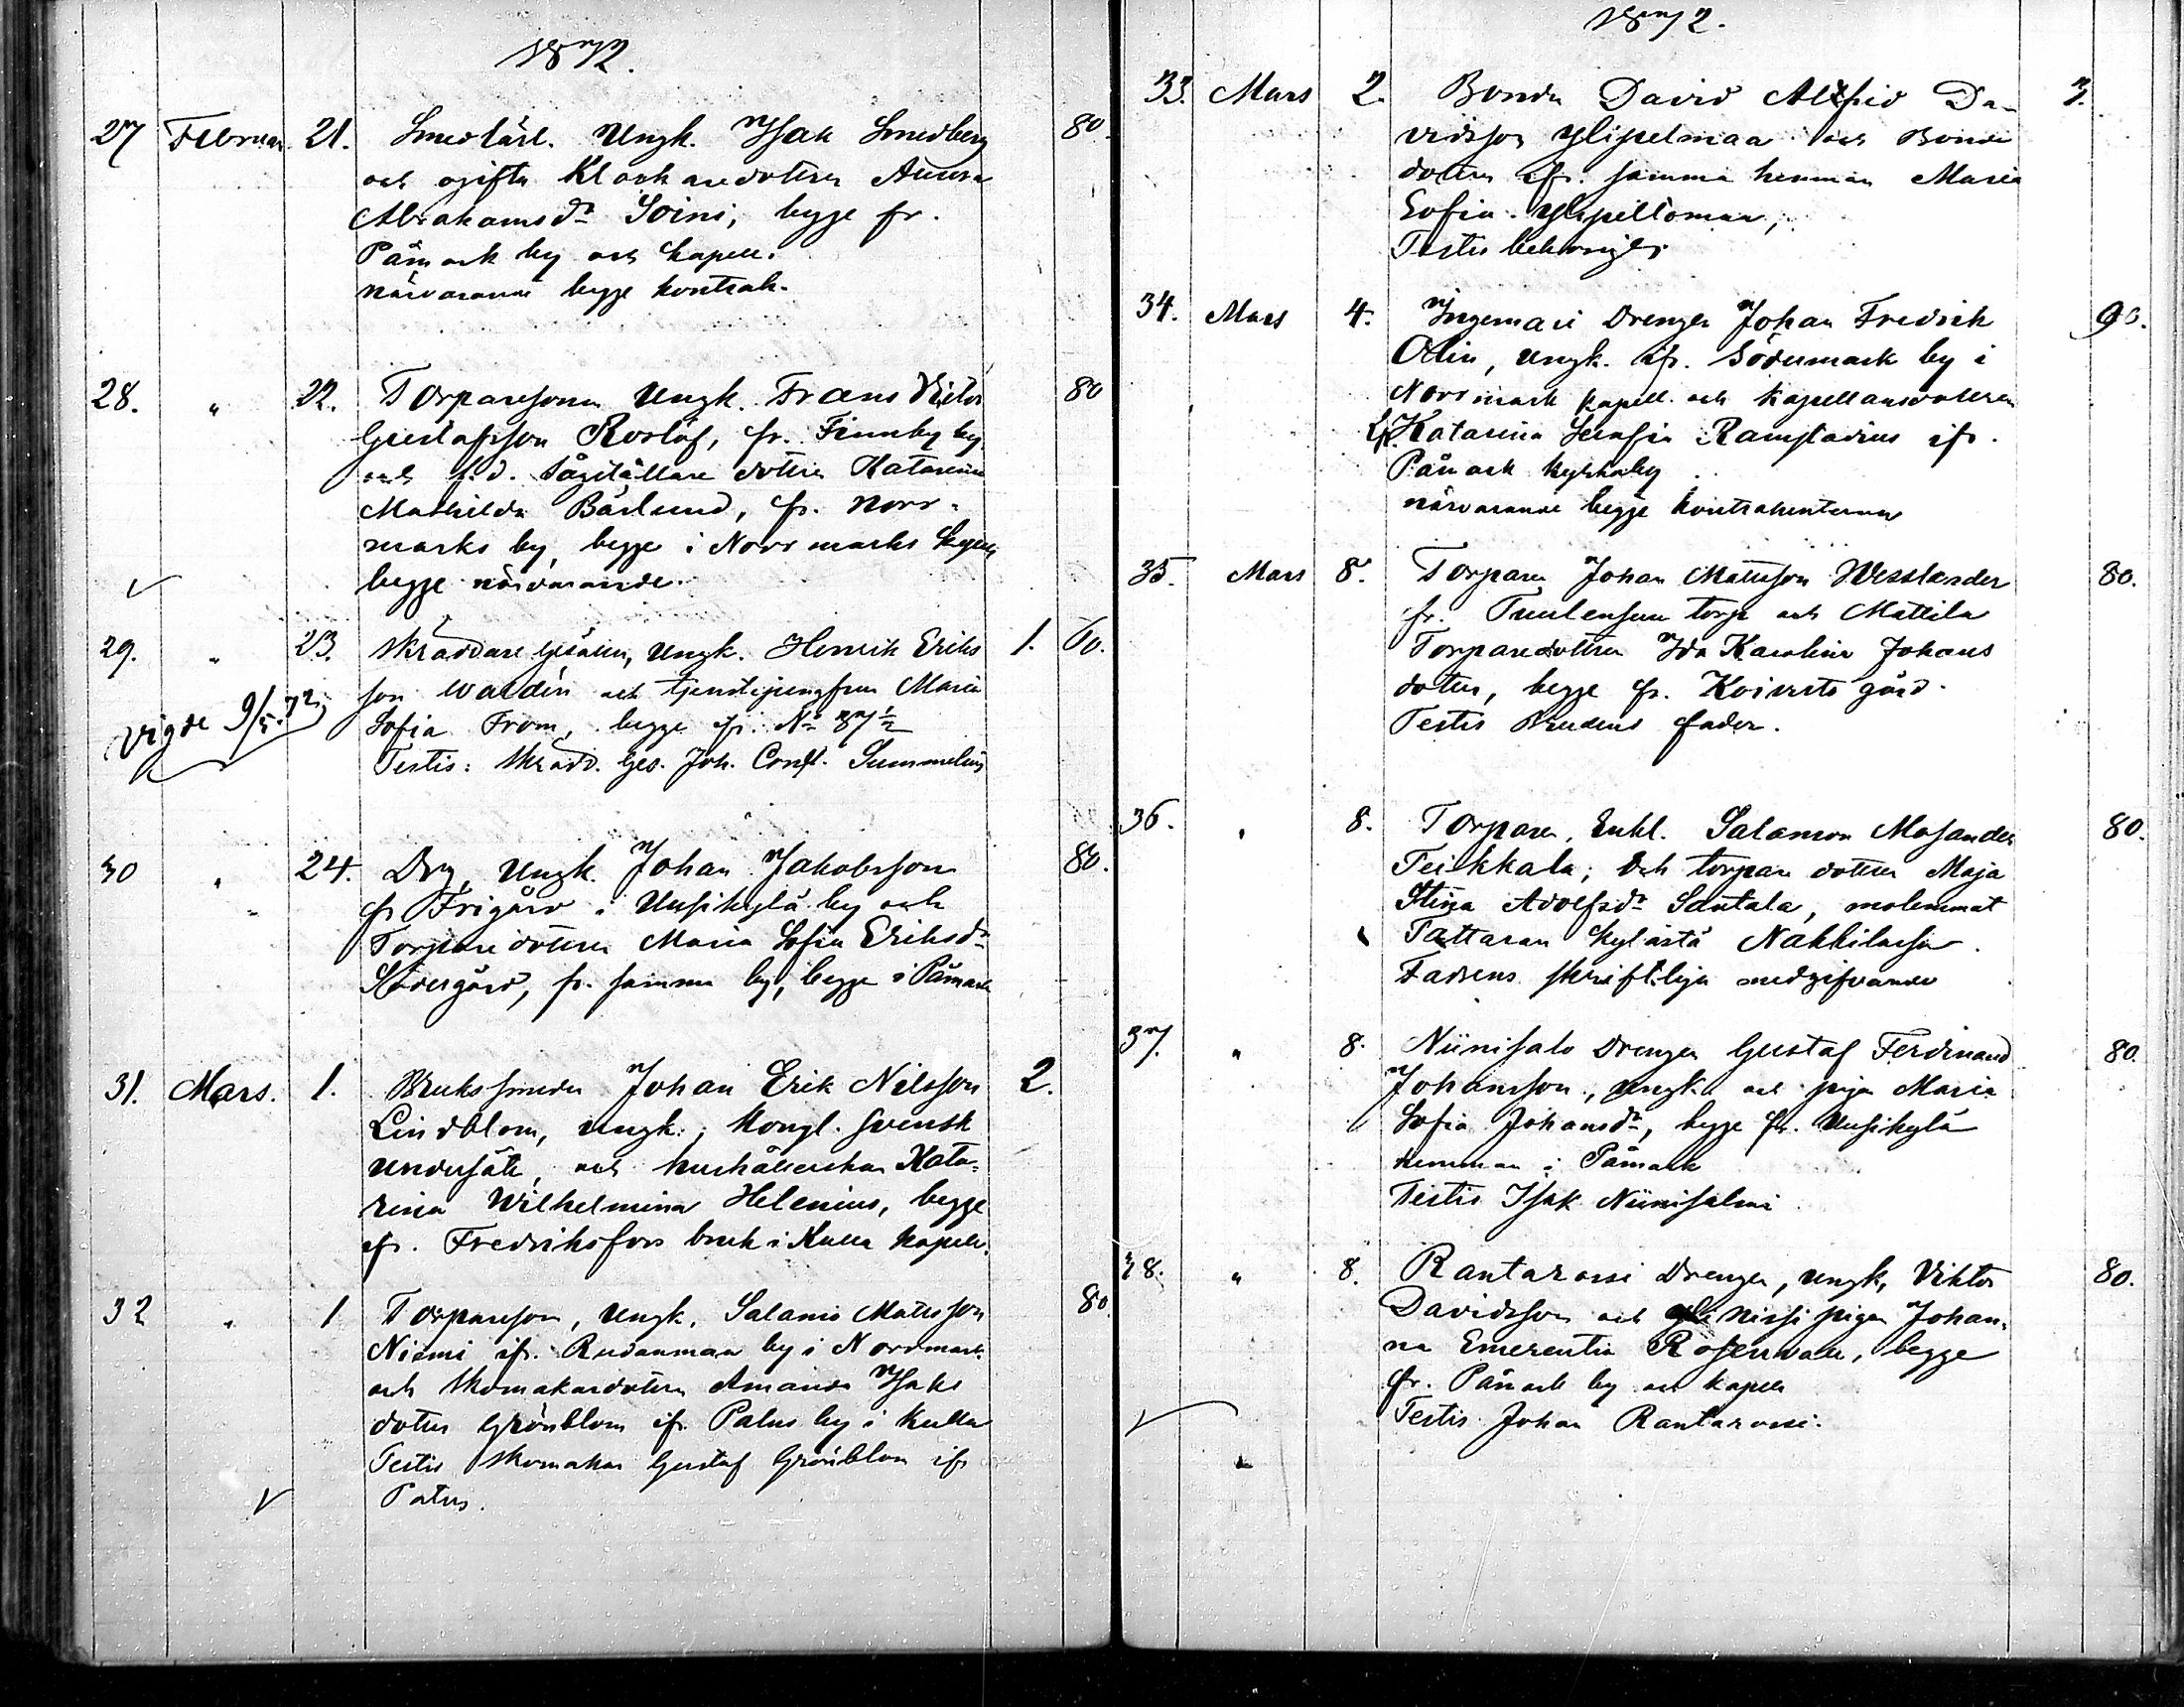 1872.
27 Februar. 21. Smedlärl. Ungk. Isak Smedberg 80.
och ogifta Klockaredottren Aurora
Abrahamsdr Soini, begge fr.
Påmark by och kapell.
närvarande begge kontrah.
28. " 22. Torparesonen Ungk. Frans Viktor 80
Gustafsson Roslöf, fr. Finnby by
och f.d. dottren Katarina
Mathilda Bärlund, fr. Norr-
marks by, begge i Norrmarks kapell
begge närvarande.
29. " 23. Skräddare gesällen, Ungk. Henrik Eriks 1. 60.
son Wardén och tjenstejungfrun Maria
Sofia From, begge fr. No 87½
Vigde 9/5.72
Testis: Skrädd. Ges. Joh. Const. Summelius
30 " 24. Drg, Ungk. Johan Jakobsson 80.
fr Frigård i Uusikylä by och
Torpare dottren Maria Sofia Eriksdr
Södergård, fr. samma by, begge i Påmark
31. Mars. 1. Bruks smeden Johan Erik Nilsson 2.
Lindblom, ungk.; Kongl. svensk
undersåte, och hushållerskan Kata-
rina Wilhelmina Helenius, begge
fr. Fredriksfors bruk i Kulla kapell.
32 " 1 Torpareson, Ungk. Salamo Matsson 80.
Niemi ifr. Rudanmaa by i Norrmark
och Skomakaredottren Amanda Isaks
dotter Grönblom ifr. Palus by i Kulla
Testis Skomakar Gustaf Grönblom ifr
Palus.
1872.
33. Mars 2. Bonden David Alfrid Da- 3.
vidsson Ylispelmaa och Bonde
dottren ifr. samma hemman Maria
Sofia
Testis behörigt
34. Mars 4. Ingemari Drengen Johan Fredrik 90.
Olin, ungk. ifr. Södermark by i
Norrmark kapell. och kapellansdottren
Katarina Serafia Ramstadius ifr.
Påmark kyrkoby
närvarande begge kontrahenterna
35. Mars 8. Torparen Johan Mattsson Wesslander 80.
fr. torp och Mattila
Torparedottren Ida Karolina Johans
dotter, begge fr. Koivisto gård.
Testis Brudens fader.
36. " 8. Torparen, Enkl. Salamon Mosander 80.
Teikkala; och torpare dottren Maja
Stina Adolfsdr Santala, molemmat
Tattaran kylästä Nakkilassa.
Fadrens skriftliga medgifvande
37. " 8. Niinisalo Drengen Gustaf Ferdinand 80.
Johansson, ungk. och pigan Maria
Sofia Johansdr, begge fr. Uusikylä
hemman i Påmark
Testis Isak Niinisalmi
38. " 8. Rantarossi Drengen, ungk, Viktor 80.
Davidsson och nissi pigan Johan-
na Emerentia Rosenwall, begge
fr. Påmark by och kapell
Testis Johan Rantarossi.